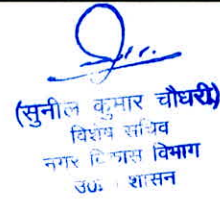 (सुनील कुमार चौधरी)
विशेष सचिव
नगर विकास विभाग
शासन